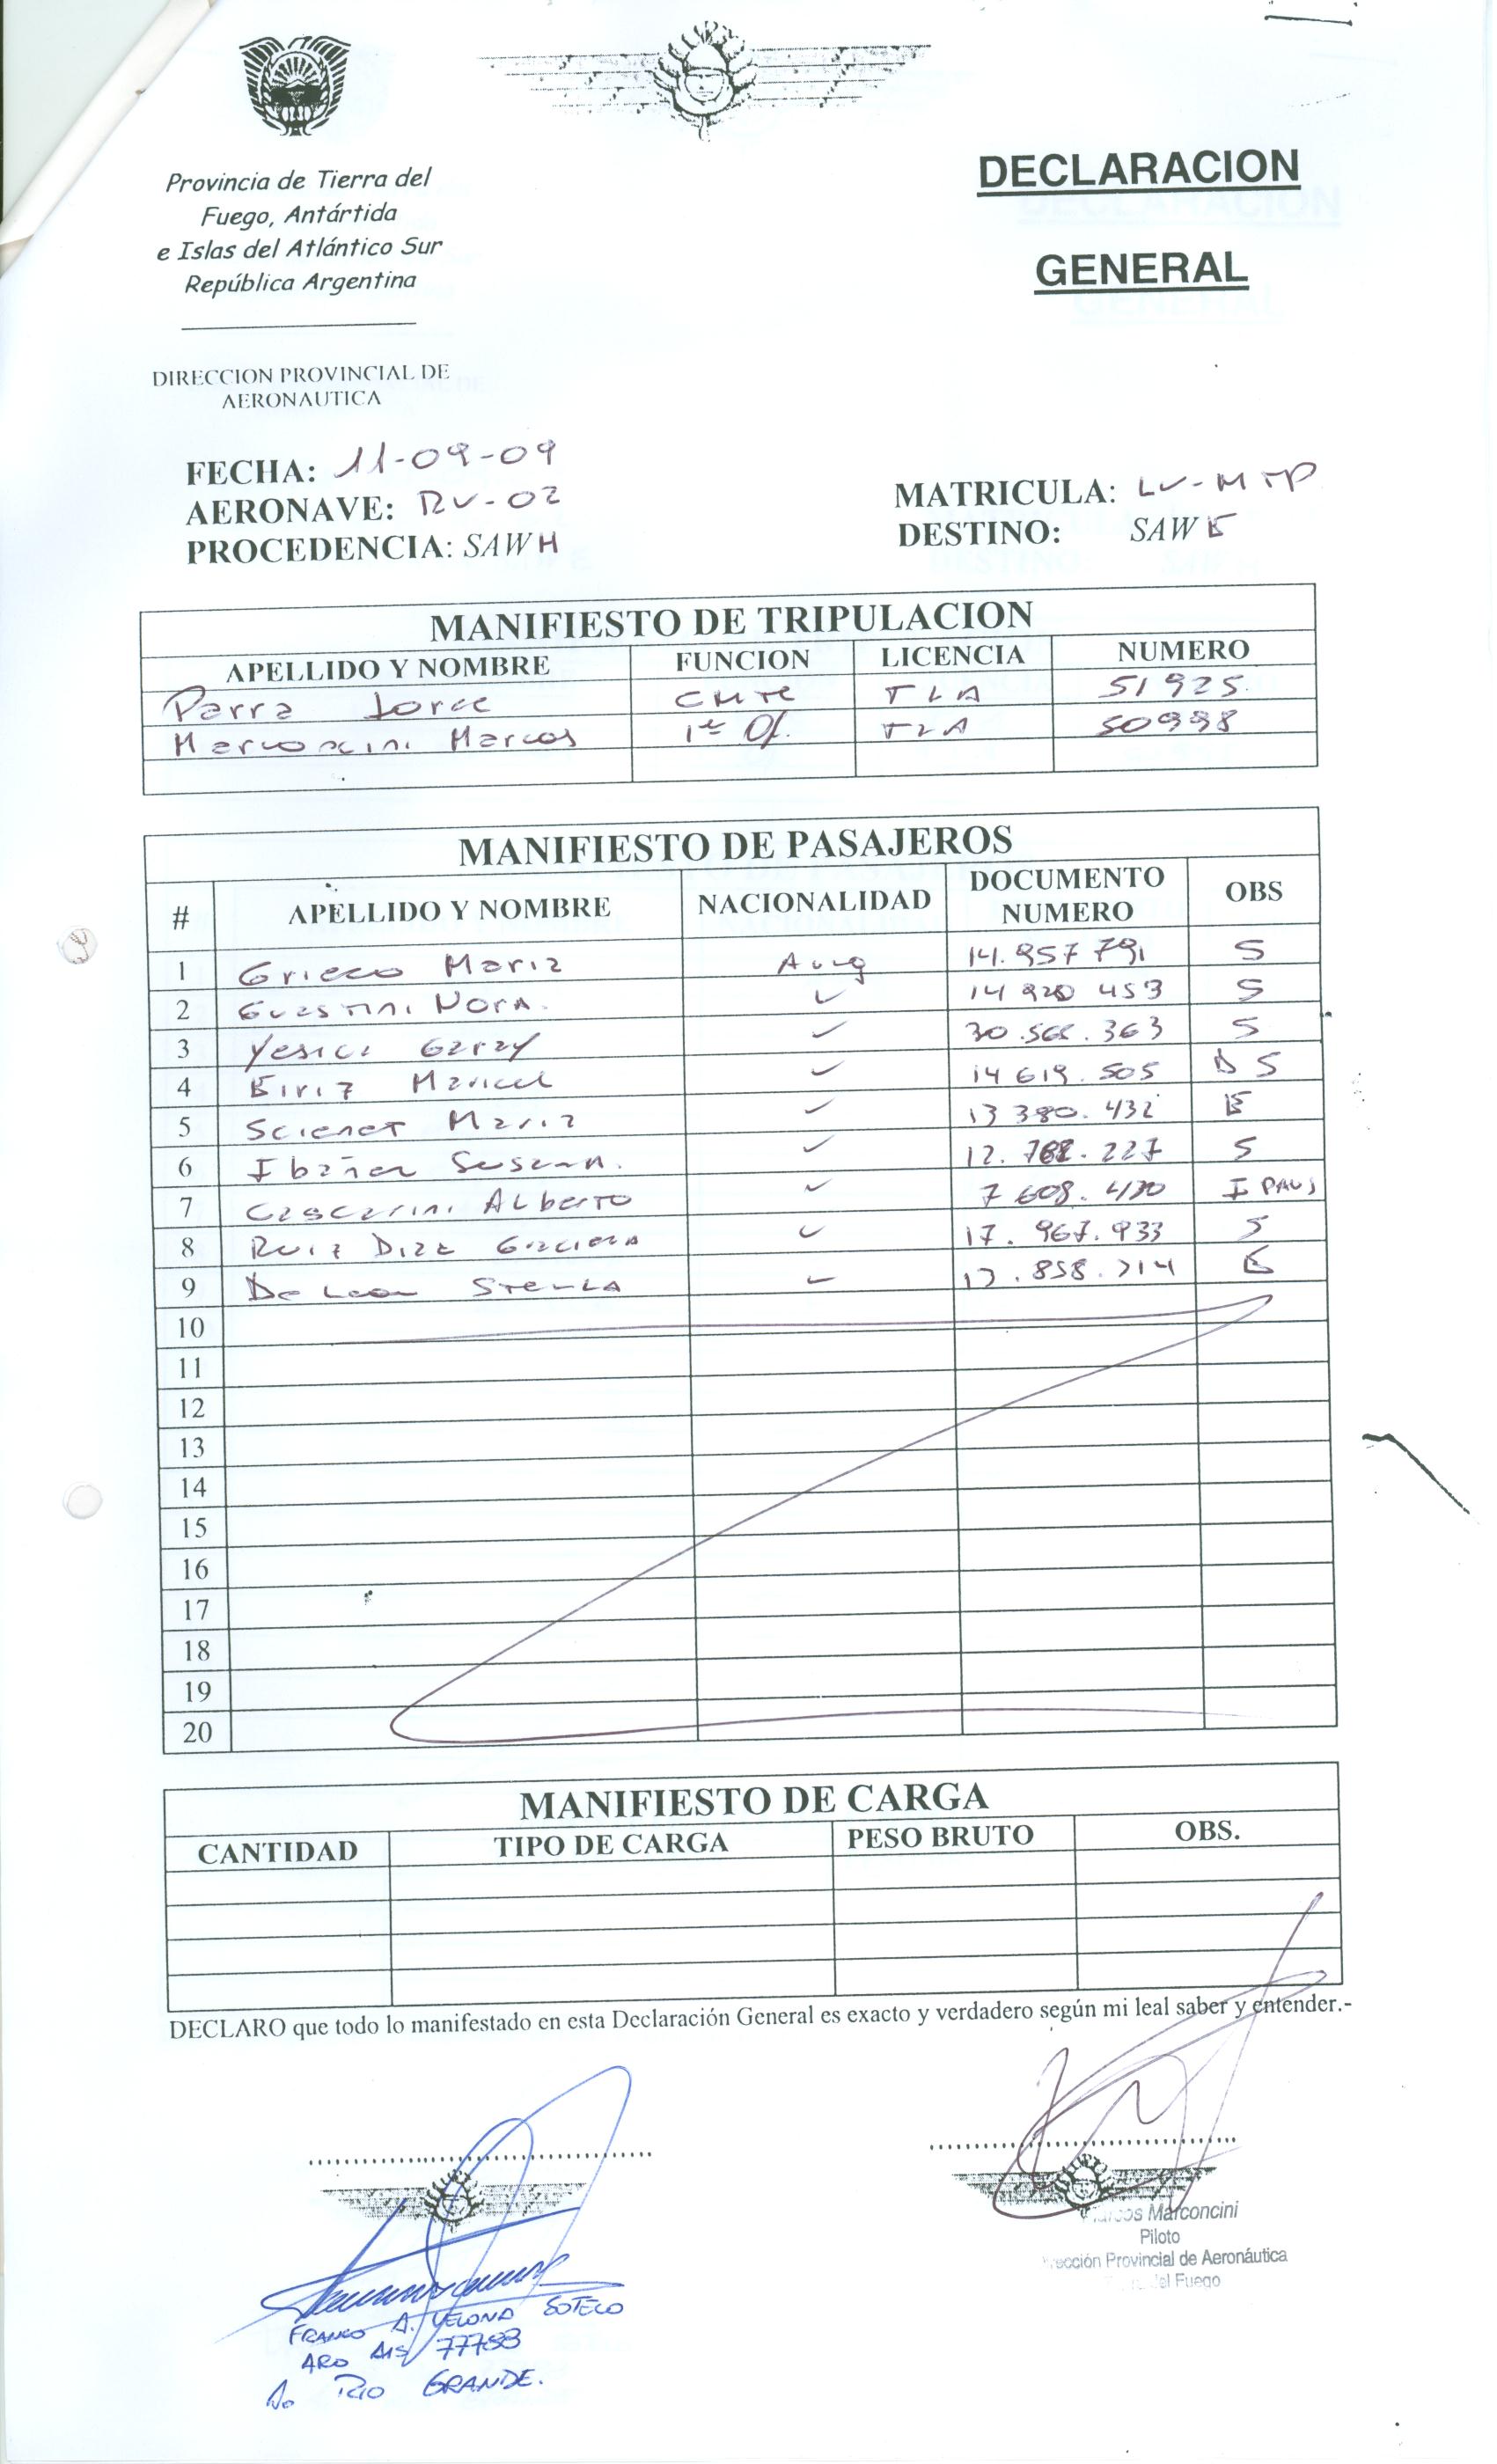 Provincia de Tierra del
Fuego, Antártida
e Islas del Atlántico Sur
República Argentina
DECLARACION
GENERAL
DIRECCION PROVINCIAL DE
AERONAUTICA
FECHA: 11-09-09
AERONAVE: RV-02
PROCEDENCIA: SAWH
MATRICULA: LV-MTP
DESTINO: SAWE
MANIFIESTO DE TRIPULACION
APELLIDO Y NOMBRE FUNCION LICENCIA NUMERO
Parra Jorge CMTE TLA 51925
Marconcini Marcos 1er Of. TLA 50998
MANIFIESTO DE PASAJEROS
# APELLIDO Y NOMBRE NACIONALIDAD DOCUMENTO NUMERO OBS
1 Grieco Maria Arg 14.957 791 S
2 Guastini Nora 14 920 453 S
3 Yesica Garay 30.566.363 S
4 Eiriz Maricel 14 619.505 D S
5 Sciener Maria 13 380.432 E
6 Ibañez Susana. 12.788.227 S
7 Cascarini Alberto 7 608.430 I PAUS
8 Ruiz Diaz Graciela 17.967.933 S
9 De Leon Stella 13.858.714 E
10
11
12
13
14
15
16
17
18
19
20
MANIFIESTO DE CARGA
CANTIDAD TIPO DE CARGA PESO BRUTO OBS.
DECLARO que todo lo manifestado en esta Declaración General es exacto y verdadero según mi leal saber y entender.-
Marconcini
Piloto
Provincial de Aeronáutica
del Fuego
FRANCO A. VELONA SOTELO
ARO AIS 77783
Ao RIO GRANDE.